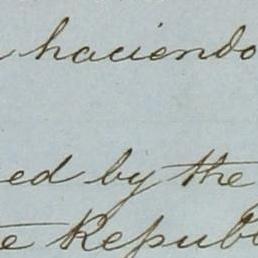 haciendo
ed by the
e Republ